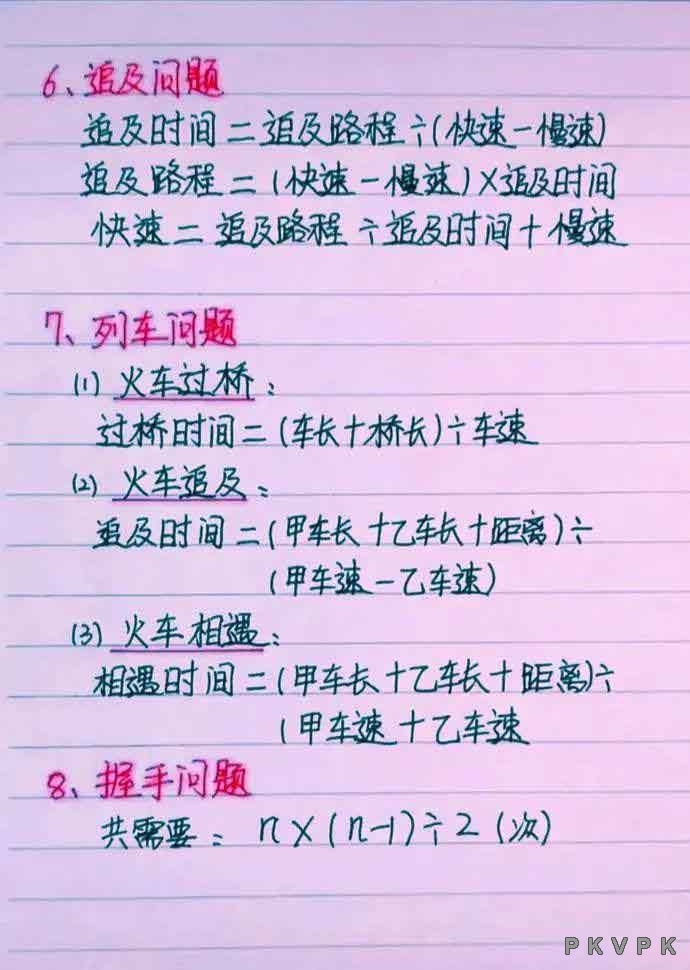 6、追及问题
追及时间=追及路程÷(快速-慢速)
追及路程=(快速-慢速)×追及时间
快速=追及路程÷追及时间+慢速
7、列车问题
(1)火车过桥:
过桥时间=(车长+桥长)÷车速
(2)火车追及:
追及时间=(甲车长+乙车长+距离)÷
(甲车速-乙车速)
(3)火车相遇:
相遇时间=(甲车长+乙车长+距离)÷
(甲车速+乙车速
8、握手问题
共需要:n×(n-1)÷2(次)
PKVPK